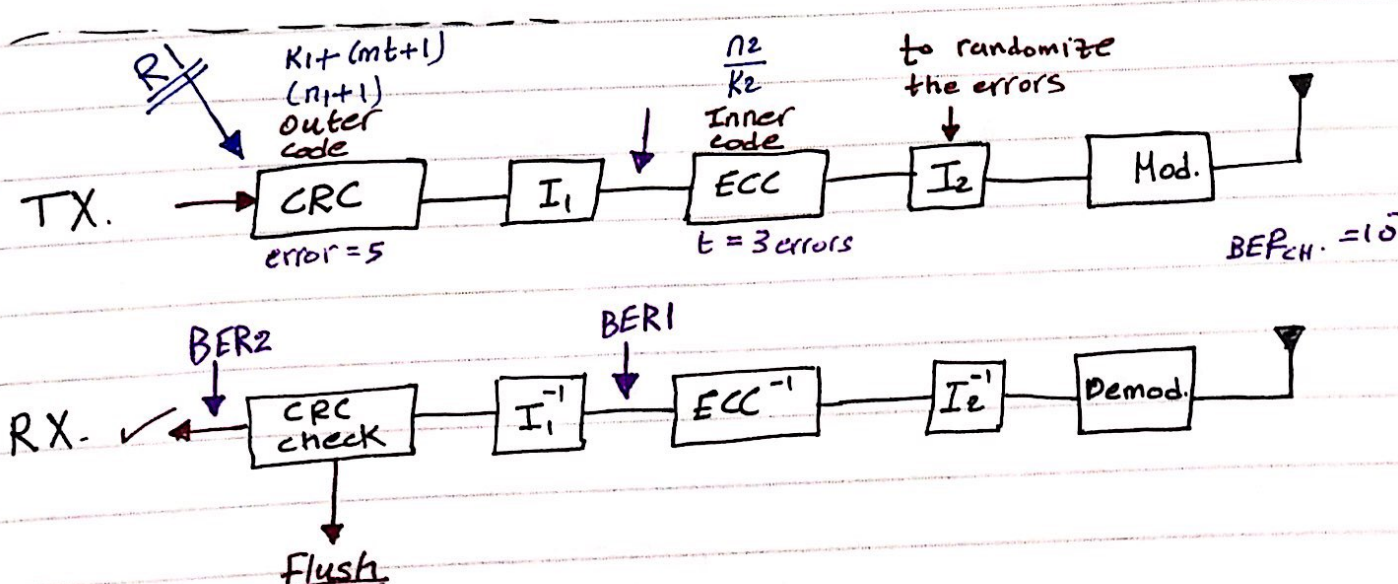 R1
K1+(mt+1)
(n1+1)
outer
code
n2
K2
Inner
code
to randomize
the errors
TX.
CRC
I1
ECC
I2
Mod.
error = 5
t = 3 errors
BER2
BER1
RX.
CRC
check
I1^-1
ECC^-1
I2^-1
Demod.
Flush